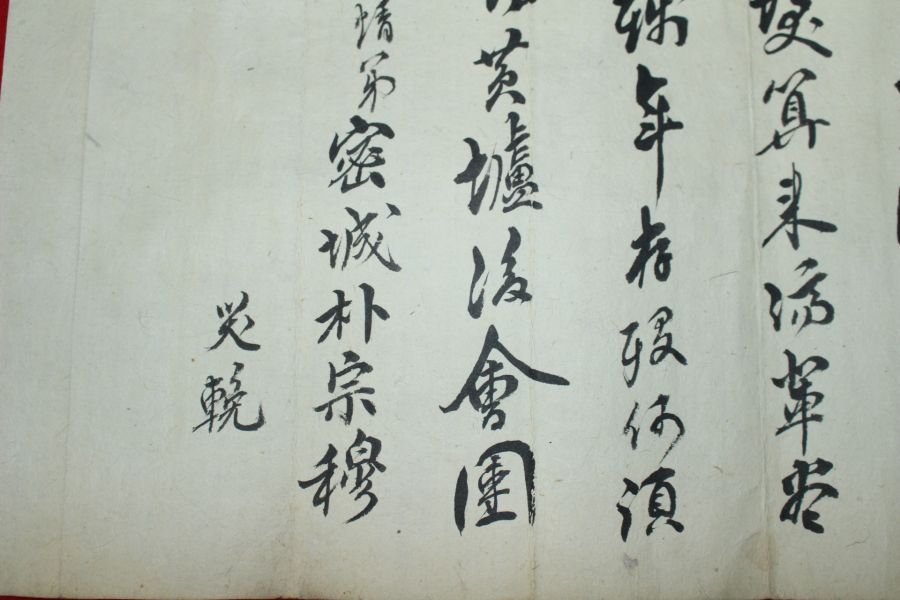 算來流輩盡
年存歿何須
黃壚後會團
情弟密城朴宗穆
哭輓